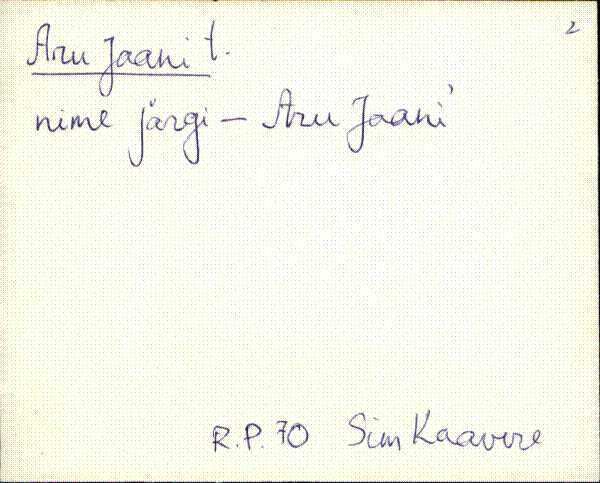 2
Aru Jaani t.
nime järgi – Aru Jaani
R.P. 70 Sim Kaavere